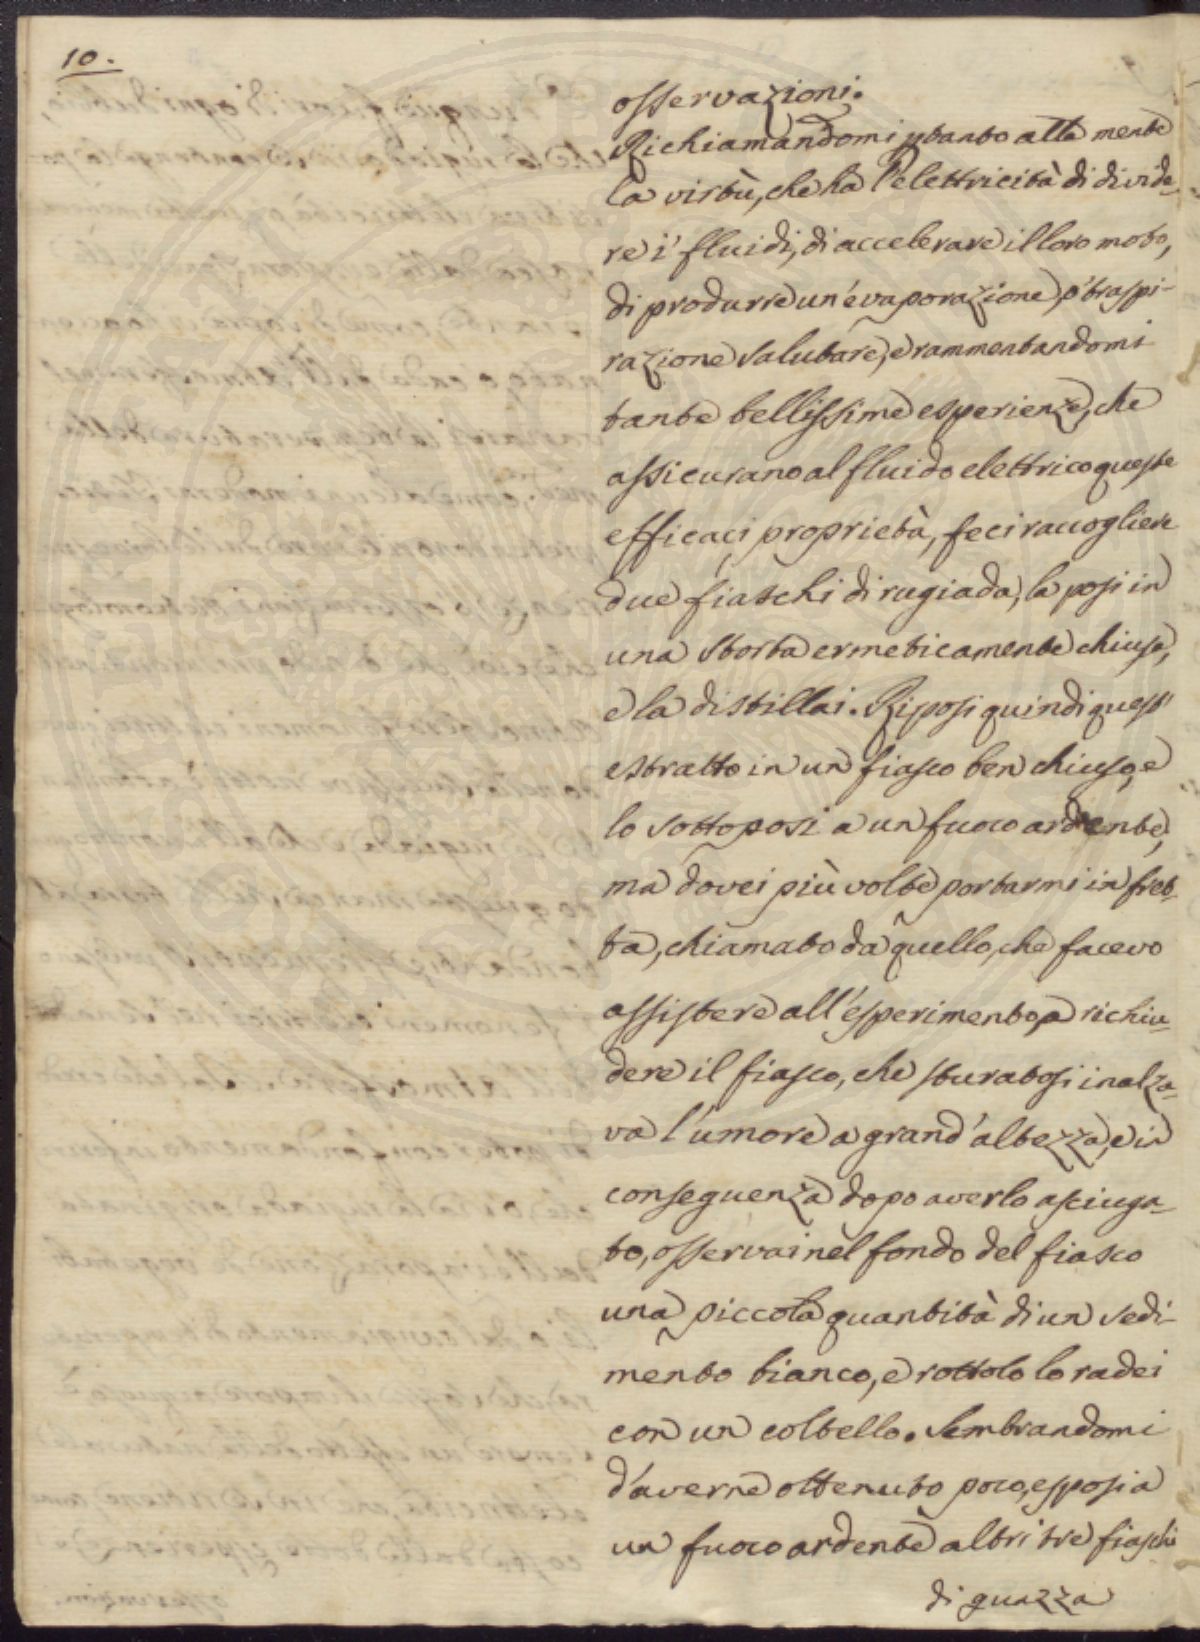 10.
osservazioni.
Richiamandomi pertanto alla mente
la virtù, che ha l'elettricità di divide-
re i' fluidi, di accelerare il loro moto,
di produrre un'evaporazione, o' traspi-
razione salutare, e rammentandomi
tante bellissime esperienze, che
assicurano al fluido elettrico queste
efficaci proprietà, feci raccogliere
due fiaschi di rugiada, la posi in
una storta ermeticamente chiusa,
e la distillai. Riposi quindi quest'
estratto in un fiasco ben chiuso, e
lo sottoposi a un fuoco ardente,
ma dovei più volte portarmi in fret-
ta, chiamato da quello, che facevo
assistere all'esperimento, a richiu-
dere il fiasco, che sturatosi inalza-
va l'umore a grand'altezza, e in
conseguenza dopo averlo asciuga-
to, osservai nel fondo del fiasco
una piccola quantità di un sedi-
mento bianco, e rottolo lo radei
con un coltello. Sembrandomi
d'averne ottenuto poco, esposi a
un fuoco ardente altri tre fiaschi
di guazza